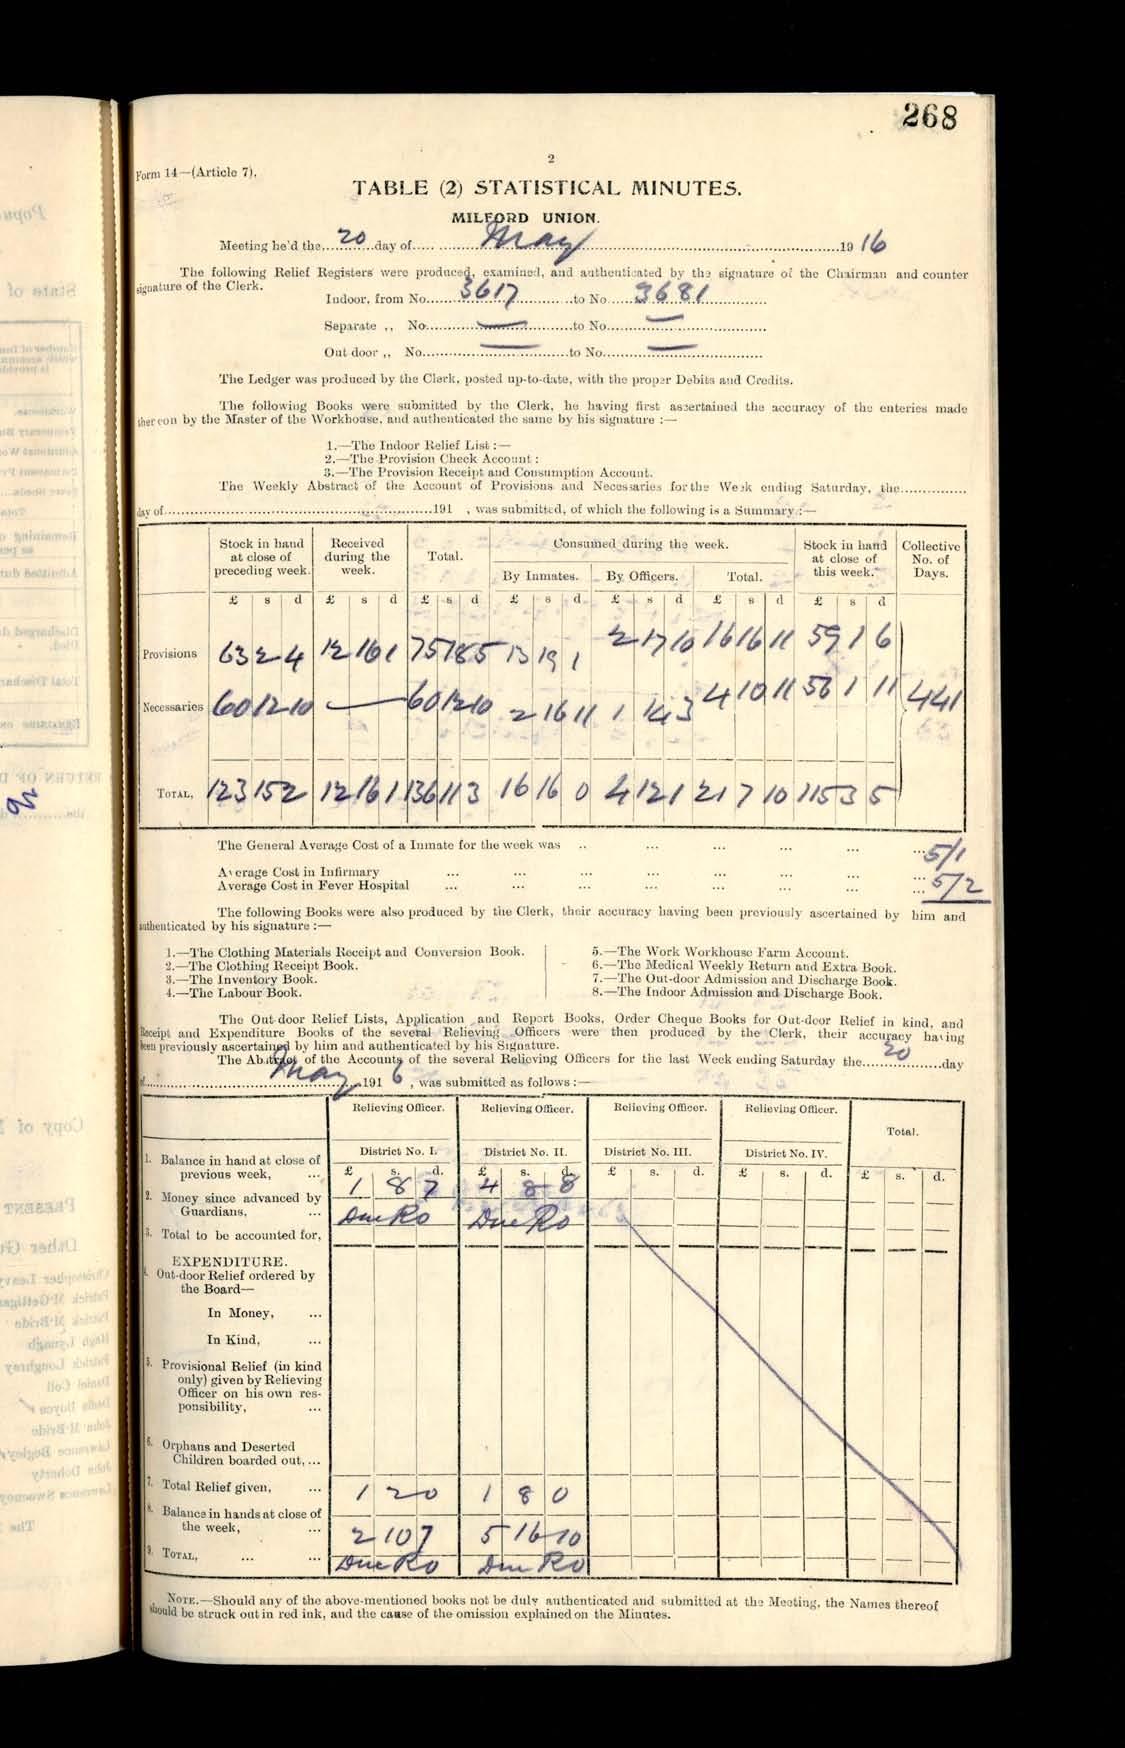 268
2
Form 14—(Article 7).
TABLE (2) STATISTICAL MINUTES.
MILFORD UNION.
Meeting he'd the 20 day of May 1916
The following Relief Registers were produced, examined, and authenticated by the signature of the Chairman and counter
signature of the Clerk.
Indoor, from No. 3617 to No. 3681
Separate ,, No. — to No. —
Out door ,, No. — to No. —
The Ledger was produced by the Clerk, posted up-to-date, with the proper Debits and Credits.
The following Books were submitted by the Clerk, he having first ascertained the accuracy of the enteries made
thereon by the Master of the Workhouse, and authenticated the same by his signature :—
1.—The Indoor Relief List :—
2.—The Provision Check Account :
3.—The Provision Receipt and Consumption Account.
The Weekly Abstract of the Account of Provisions and Necessaries for the Week ending Saturday, the
day of 191 , was submitted, of which the following is a Summary :—
Stock in hand at close of preceding week. Received during the week. Total. Consumed during the week. Stock in hand at close of this week. Collective No. of Days.
By Inmates. By Officers. Total.
£ s d £ s d £ s d £ s d £ s d £ s d £ s d
Provisions 63 2 4 12 16 1 75 18 5 13 19 1 2 17 10 16 16 11 59 1 6
Necessaries 60 12 10 — 60 12 10 2 16 11 1 14 3 4 10 11 56 1 11 441
TOTAL, 123 15 2 12 16 1 136 11 3 16 16 0 4 12 1 21 7 10 115 3 5
The General Average Cost of a Inmate for the week was .. ... ... ... ... ... 5/1
Average Cost in Infirmary ... ... ... ... ... ... ... ...
Average Cost in Fever Hospital ... ... ... ... ... ... ... ... 5/2
The following Books were also produced by the Clerk, their accuracy having been previously ascertained by him and
authenticated by his signature :—
1.—The Clothing Materials Receipt and Conversion Book.
2.—The Clothing Receipt Book.
3.—The Inventory Book.
4.—The Labour Book.
5.—The Work Workhouse Farm Account.
6.—The Medical Weekly Return and Extra Book.
7.—The Out-door Admission and Discharge Book.
8.—The Indoor Admission and Discharge Book.
The Out-door Relief Lists, Application and Report Books, Order Cheque Books for Out-door Relief in kind, and
Receipt and Expenditure Books of the several Relieving Officers were then produced by the Clerk, their accuracy having
been previously ascertained by him and authenticated by his Signature.
The Abstract of the Accounts of the several Relieving Officers for the last Week ending Saturday the 20 day
of May 1916, was submitted as follows :—
Relieving Officer. Relieving Officer. Relieving Officer. Relieving Officer. Total.
District No. I. District No. II. District No. III. District No. IV.
£ s. d. £ s. d. £ s. d. £ s. d. £ s. d.
1. Balance in hand at close of
previous week, ... 1 8 7 4 8 8
2. Money since advanced by
Guardians, ... Due RO Due RO
3. Total to be accounted for,
EXPENDITURE.
4. Out-door Relief ordered by
the Board—
In Money, ...
In Kind, ...
5. Provisional Relief (in kind
only) given by Relieving
Officer on his own res-
ponsibility, ...
6. Orphans and Deserted
Children boarded out, ...
7. Total Relief given, ... 1 2 0 1 8 0
8. Balance in hands at close of
the week, ... 2 10 7 5 16 10
9. TOTAL, ... ... Due RO Due RO
NOTE.—Should any of the above-mentioned books not be duly authenticated and submitted at the Meeting, the Names thereof
should be struck out in red ink, and the cause of the omission explained on the Minutes.